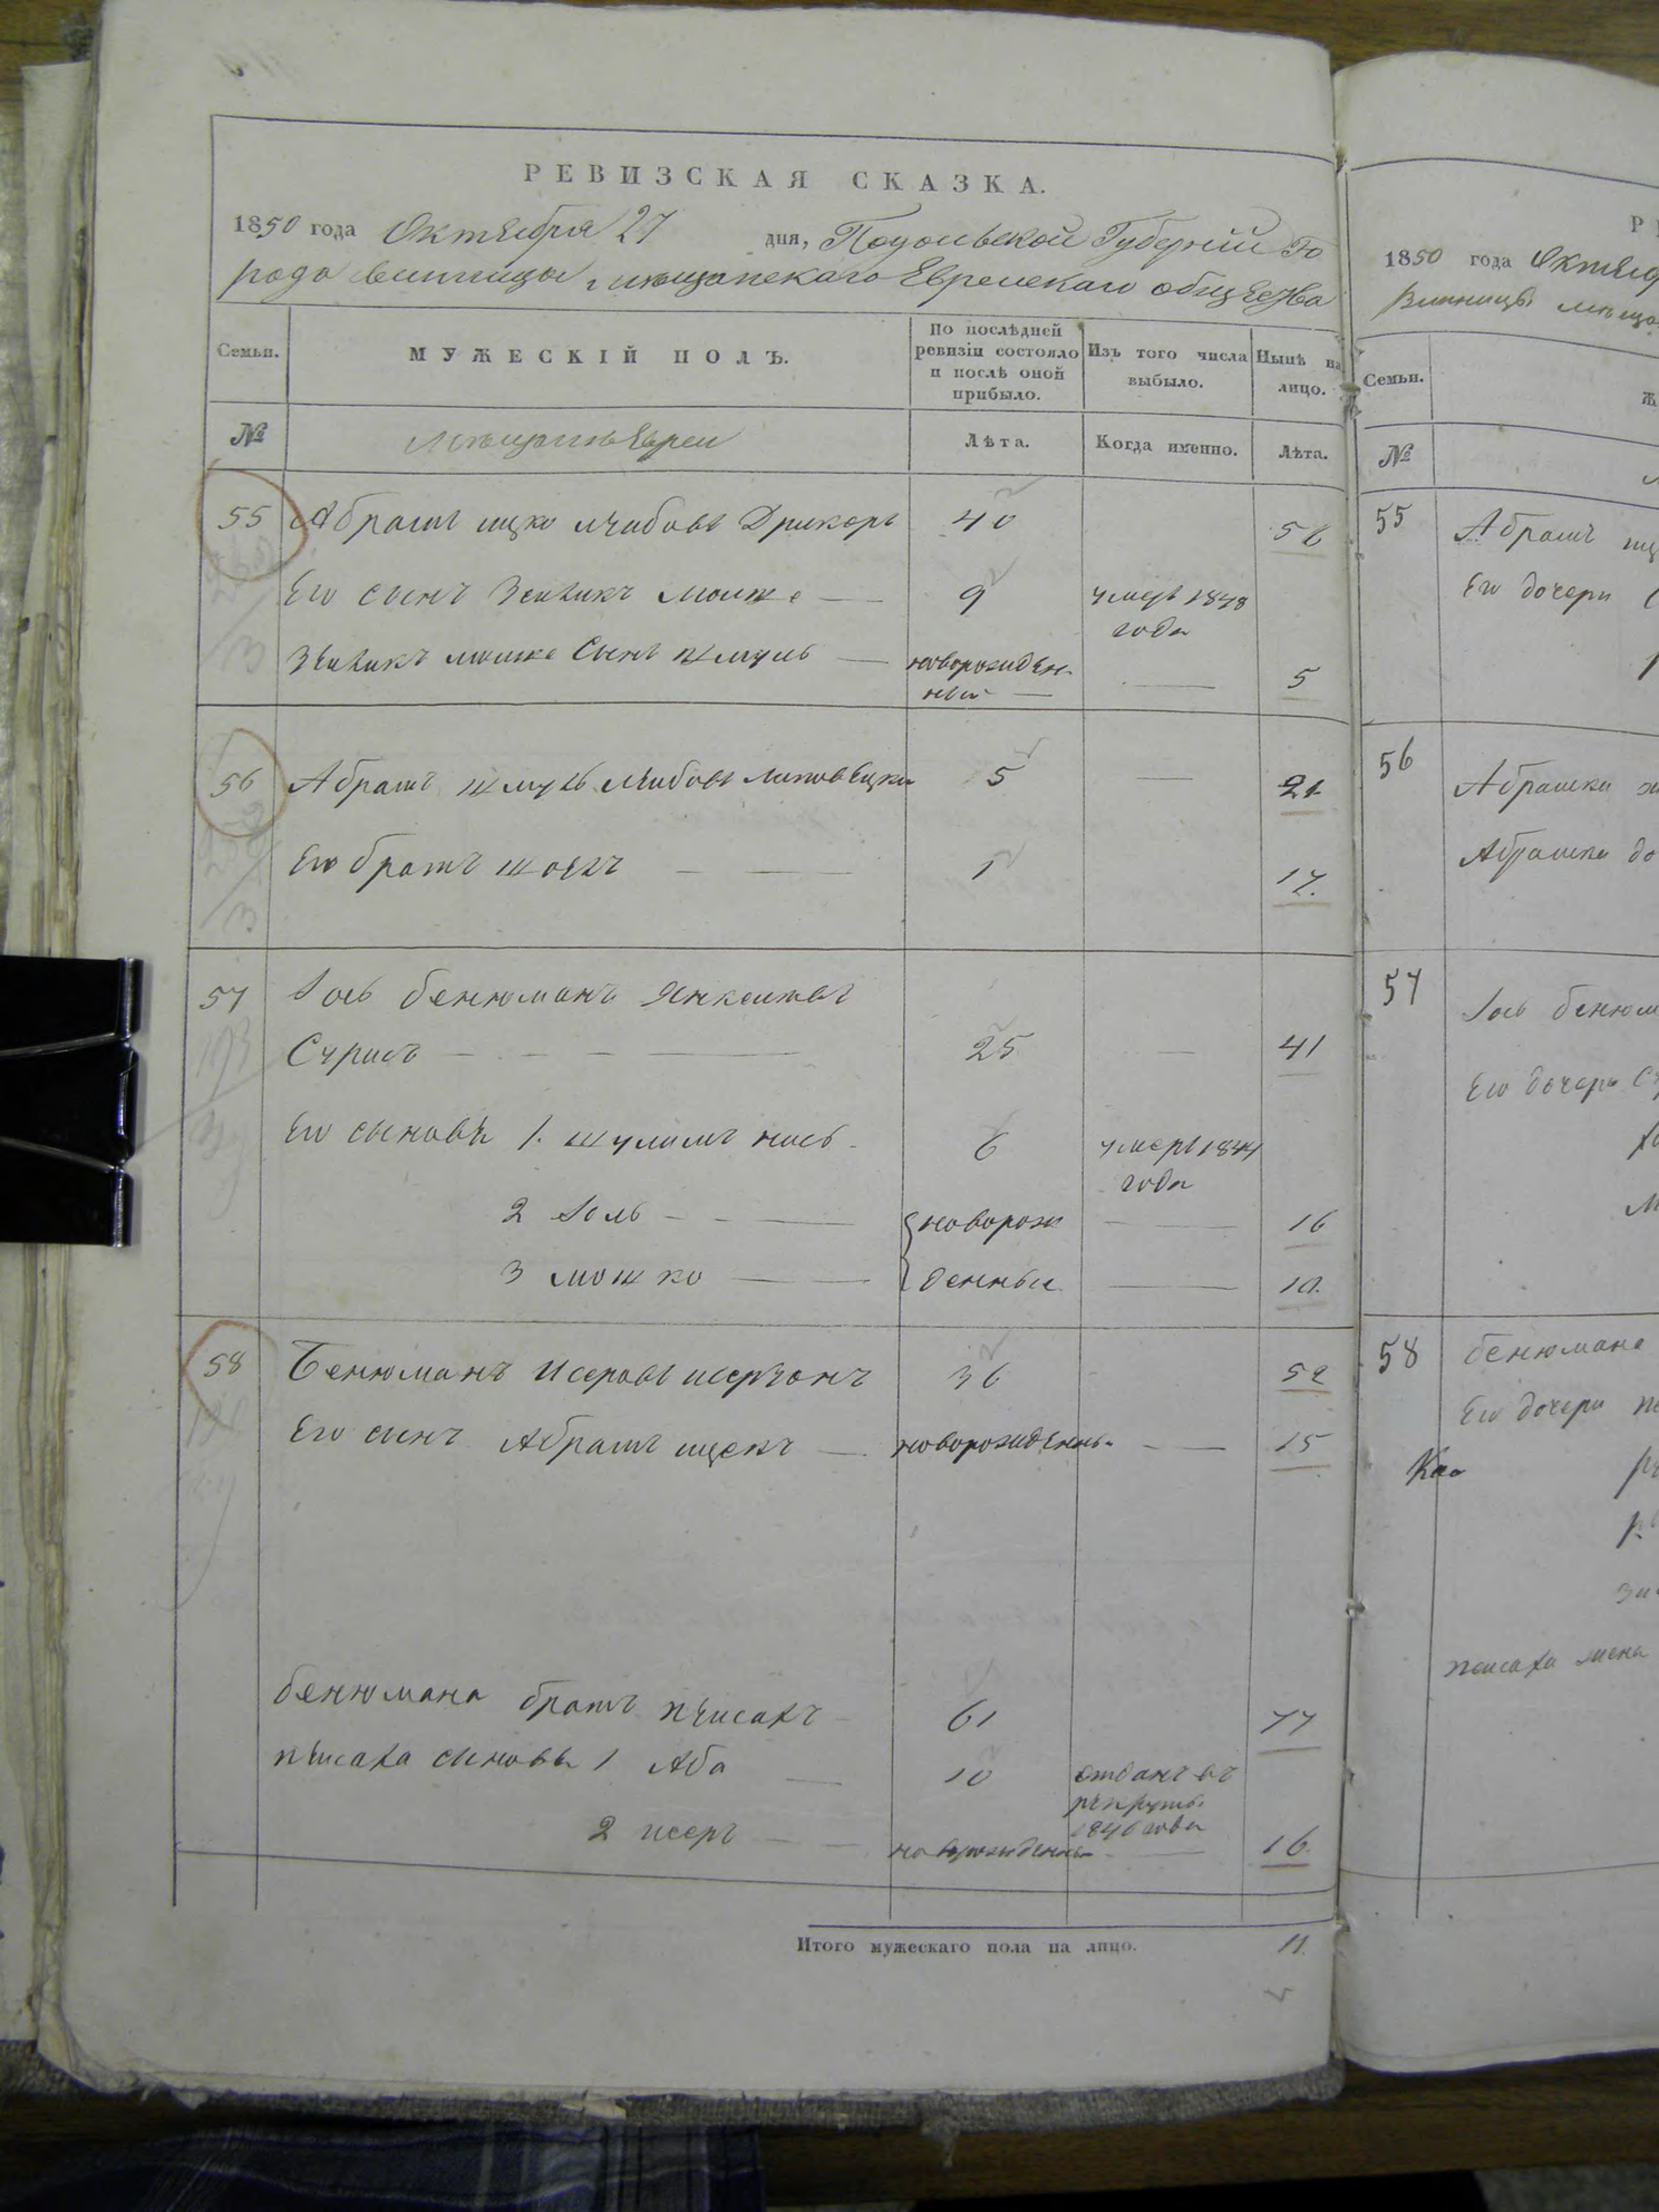 РЕВИЗСКАЯ СКАЗКА.
1850 года Октября 27 дня, Подольской Губерніи Го
рода Винницы, мѣщанскаго Еврейскаго общества
Семьи. МУЖЕСКІЙ ПОЛЪ. По послѣдней ревизіи состояло и послѣ оной прибыло. Изъ того числа выбыло. Нынѣ на лицо.
№ Мѣщане Евреи Лѣта. Когда именно. Лѣта.
55 Абрамъ ицко Лейбовъ Дрикеръ 40 56
Его сынъ Зейликъ мошке 9 умеръ 1848
года
Зейликъ мошке Сынъ шмуль новорожден-
ный 5
56 Абрамъ шмуль Лейбовъ Липовецки 5 21
Его братъ 1 17.
57 Іось бенюманъ
25 41
Его сыновья 1. шулимъ 6 умеръ 1844
года
2 новорож 16
3 мошко денные 10.
58 Бенюманъ Исеровъ исерзонъ 36 52
Его сынъ Абрамъ ицекъ новорожденны 15
бенюмана братъ пейсахъ 61 77
пейсаха сыновья 1 Аба 10 отданъ въ
рекруты
1840 года
2 исеръ новорожденны 16
Итого мужескаго пола на лицо. 11.
1850 года
Винницы
Семьи.
№
55 Абрамъ
Его дочери
56 Абрашки
Абрашки
57 Іось
Его дочери
58 бенюмана
Его дочери
пейсаха жена